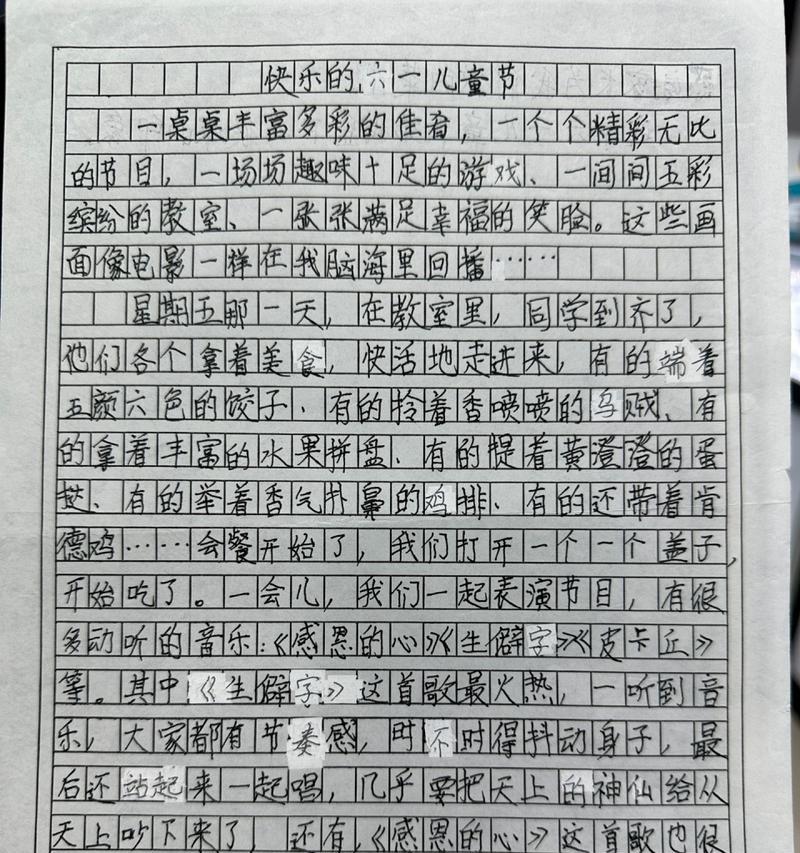 快乐的六一儿童节
一桌桌丰富多彩的佳肴，一个个精彩无比
的节目，一场场趣味十足的游戏、一间间五彩
缤纷的教室、一张张满足幸福的笑脸。这些画
面像电影一样在我脑海里回播……
星期五那一天，在教室里，同学到齐了，
他们各个拿着美食，快活地走进来，有的端着
五颜六色的饺子、有的拎着香喷喷的乌贼、有
的拿着丰富的水果拼盘、有的提着黄澄澄的蛋
挞、有的举着香气扑鼻的鸡排、有的还带着肯
德鸡……会餐开始了，我们打开一个一个盖子，
开始吃了。一会儿，我们一起表演节目，有很
多动听的音乐：《感恩的心》《生僻字》《皮卡丘》
等。其中《生僻字》这首歌最火热，一听到音
乐，大家都有节奏感，时不时得抖动身子，最
后还站起来一起唱，几乎要把天上的神仙给从
天上吵下来了，还有，《感恩的心》这首歌也很